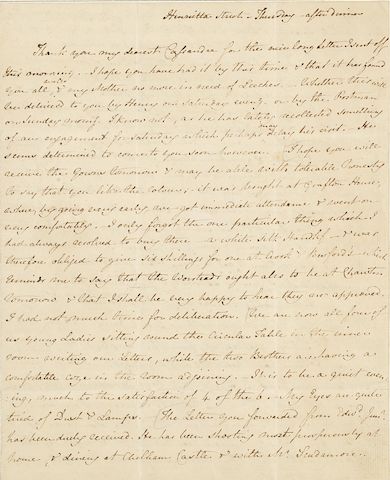 Henrietta Street - Thursday - after dinner
Thank you my dearest Cassandra for the nice long Letter I sent off
this morning. - I hope you have had it by this time & that it has found
you all well, & my Mother no more in need of Leeches. - Whether this will
be delivered to you by Henry on Saturday eveng. or by the Postman
on Sunday morng. I know not, as he has lately recollected something
of an engagement for Saturday, which perhaps may delay his visit. - He
seems determined to come to you soon however. - I hope you will
receive the Gown tomorrow & may be able with tolerable honesty
to say that you like the Colour; - it was bought at Grafton House,
where, by going very early, we got immediate attendance & went on
very comfortably. - I only forgot the one particular thing which I
had always resolved to buy there - a white silk Handkf - & was
therefore obliged to give six shillings for one at Crook & Besford's - which
reminds me to say that the Worsteds ought also to be at Chawton
tomorrow & that I shall be very happy to hear they are approved.
I had not much time for deliberation. We are now all four of
us young Ladies sitting round the Circular Table in the inner
room writing our Letters, while the two Brothers are having a
comfortable coze in the room adjoining. - It is to be a quiet even-
ing, much to the satisfaction of 4 of the 6. - My Eyes are quite
tired of Dust & Lamps. - The Letter you forwarded from Edwd. Junr.
has been duly received. He has been shooting most prosperously at
home, & dining at Chilham Castle & with Mr. Scudamore.